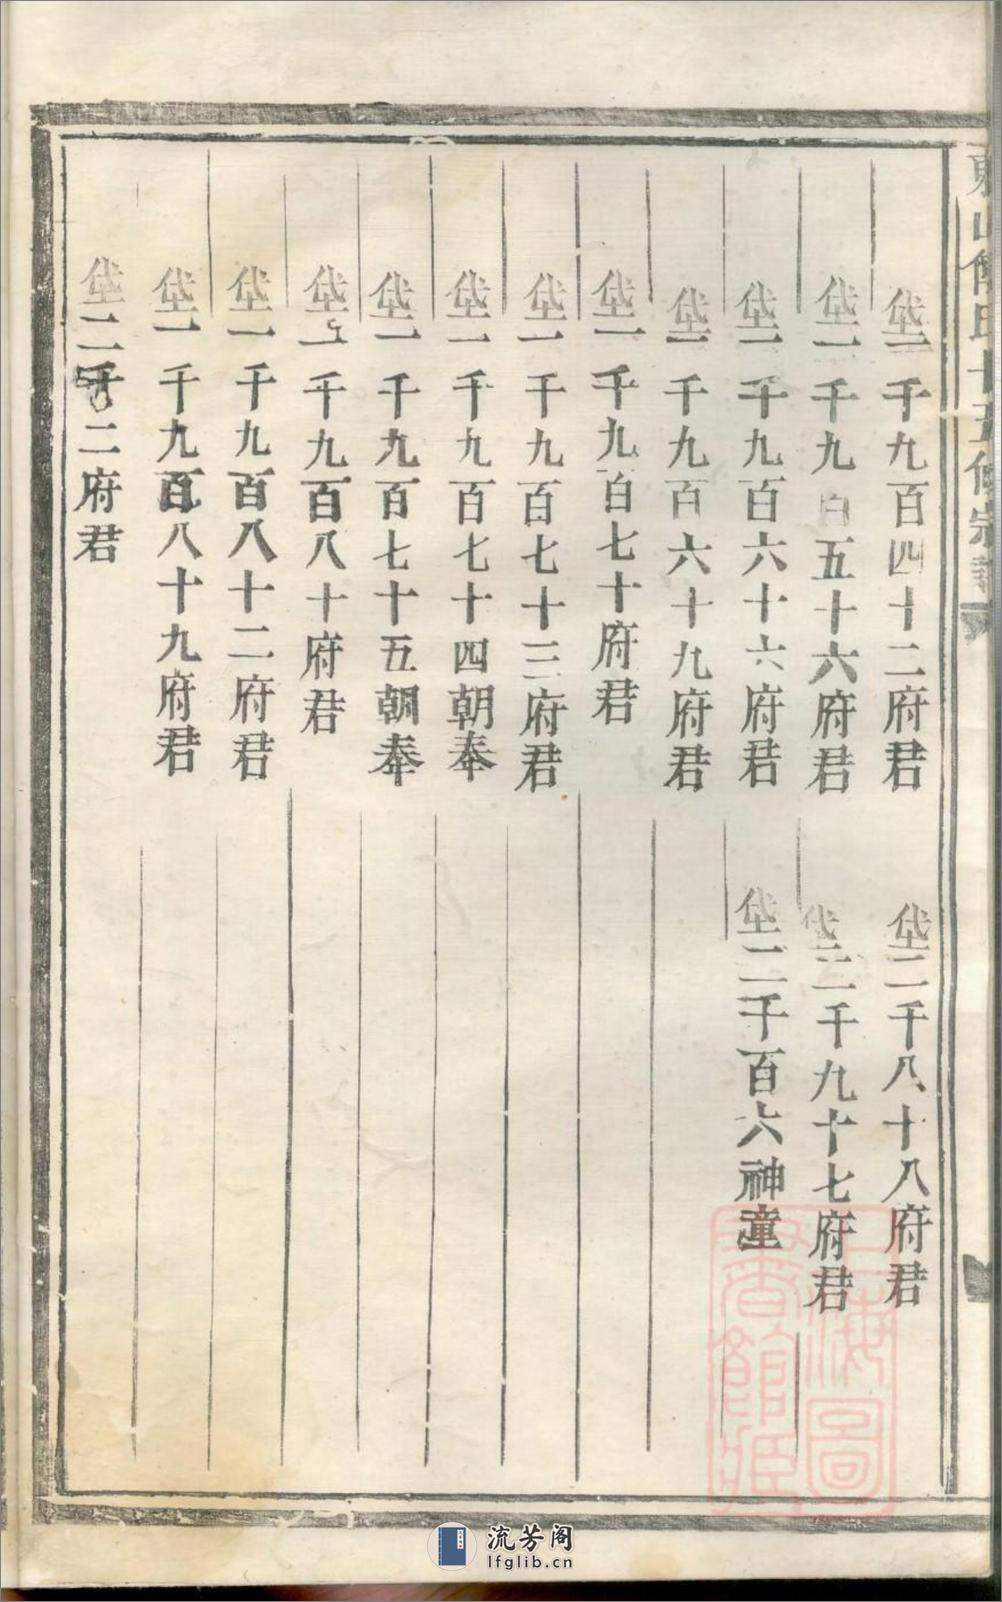 東山氏十五修宗譜
垈一千九百四十二府君
垈一千九百五十六府君
垈一千九百六十六府君
垈一千九百六十九府君
垈一千九百七十府君
垈一千九百七十三府君
垈一千九百七十四朝奉
垈一千九百七十五朝奉
垈一千九百八十府君
垈一千九百八十二府君
垈一千九百八十九府君
垈二千二府君
垈二千八十八府君
垈二千九十七府君
垈二千百六神童
上海圖書館藏
流芳阁
lfglib.cn